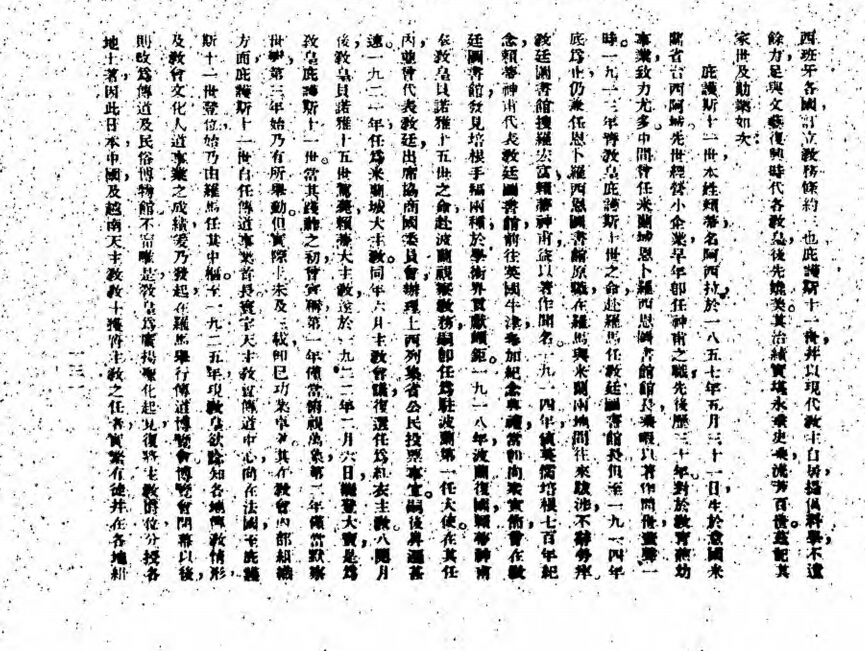 西班牙各國訂立教務條約,也庇護斯十一世并以現代教主自居提倡科學不遺
餘力足與文藝復興時代各教皇後先媲美其治績實堪永垂史乘流芳百世茲記其
家世及勛業如次:
庇護斯十一世本姓賴蒂名阿西拉於一八五七年五月三十一日生於意國米
蘭省台西阿城先世經營小企業早年卽任神甫之職先後歷三十年對於教育慈幼
事業致力尤多中間曾任米蘭城恩卜羅西恩圖書館館長乘暇以著作問世蜚聲一
時。一九一三年膺教皇庇護斯十世之命赴羅馬任教廷圖書館長但至一九一四年
底爲止仍兼任恩卜羅西恩圖書館原職在羅馬與米蘭兩地間往來跋涉不辭勞瘁
教廷圖書館搜羅宏富賴蒂神甫益以著作聞名。一九一四年值英儒培根七百年紀
念,賴蒂神甫代表教廷圖書館前往英國牛津參加紀念典禮當卽向衆宣佈曾在教
廷圖書館發見培根手稿兩種於學術界貢獻頗鉅。一九一八年波蘭復國賴蒂神甫
奉教皇貝諾雅十五世之命赴波蘭視察教務嗣卽任爲駐波蘭第一任大使在其任
內並曾代表教廷出席協商國委員會辦理上西列集省公民投票事宜嗣後與選甚
速。一九二一年任爲米蘭城大主教。同年六月主教會議復選任爲紅衣主教。八閱月
後,教皇貝諾雅十五世薨逝賴蒂大主教遂於一九二二年二月六日繼登大寶是爲
教皇庇護斯十一世當其踐祚之初曾宣稱第一年僅當俯視萬象第二年僅當默察
世變第三年始乃有所舉動但實際上未及三載卽已功業卓著其在教會內部組織
方面庇護斯十一世自任傳道事業首長寰宇天主教會傳道中心向在法國至庇護
斯十一世登位始乃由羅馬任其中樞至一九二五年現教皇欲詥知各地傳教情形
及教會文化人道事業之成績爰乃發起在羅馬舉行傳道博覽會博覽會閉幕以後
則改爲傳道及民俗博物館不甯唯是教皇爲廣揚聖化起見復將主教爵位分授各
地土著因此日本中國及越南天主教教士獲膺主教之任者實繁有徒并在各地組
一三一